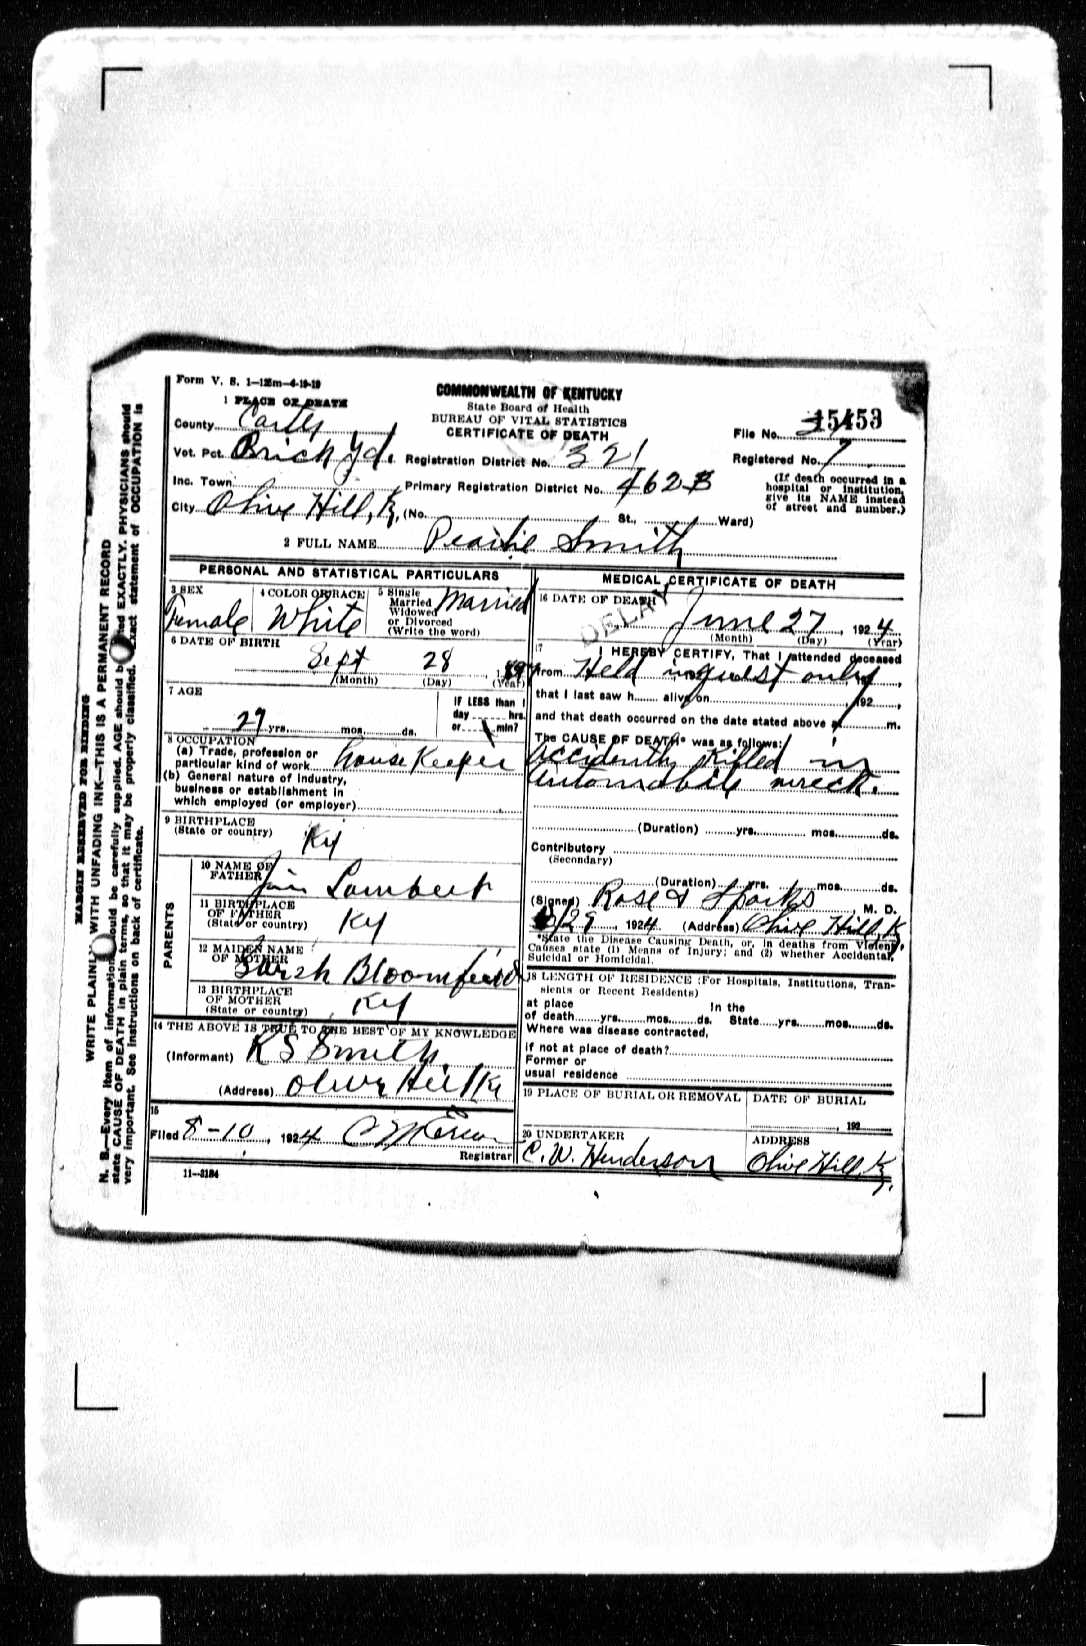 Form V. S. 1—125m—4-19-19
COMMONWEALTH OF KENTUCKY
State Board of Health
BUREAU OF VITAL STATISTICS
CERTIFICATE OF DEATH
1 PLACE OF DEATH
County Carter
Vot. Pct. Brick Yd.
Inc. Town
City Olive Hill, Ky. (No. St., Ward)
Registration District No. 321
Primary Registration District No. 4623
File No. 15453
Registered No. 7
(If death occurred in a
hospital or institution,
give its NAME instead
of street and number.)
2 FULL NAME Pearlie Smith
PERSONAL AND STATISTICAL PARTICULARS
3 SEX
Female
4 COLOR OR RACE
White
5 Single
Married
Widowed
or Divorced
(Write the word)
Married
6 DATE OF BIRTH
Sept 28
(Month) (Day) (Year)
7 AGE
29 yrs. mos. ds.
IF LESS than 1
day hrs.
or min?
8 OCCUPATION
(a) Trade, profession or
particular kind of work House Keeper
(b) General nature of Industry,
business or establishment in
which employed (or employer)
9 BIRTHPLACE
(State or country) Ky
PARENTS
10 NAME OF
FATHER Jim Lambert
11 BIRTHPLACE
OF FATHER
(State or country) Ky
12 MAIDEN NAME
OF MOTHER Sarah Bloomfield
13 BIRTHPLACE
OF MOTHER
(State or country) Ky
14 THE ABOVE IS TRUE TO THE BEST OF MY KNOWLEDGE
(Informant) K S Smith
(Address) Olive Hill Ky
15
Filed 8-10, 1924
Registrar
11—3184
MEDICAL CERTIFICATE OF DEATH
16 DATE OF DEATH
DELAY
June 27, 1924
(Month) (Day) (Year)
17
I HEREBY CERTIFY, That I attended deceased
from Held inquest only
that I last saw h alive on 192
and that death occurred on the date stated above at m.
The CAUSE OF DEATH* was as follows:
Accidently Killed in
Automobile wreck.
(Duration) yrs. mos. ds.
Contributory
(Secondary)
(Duration) yrs. mos. ds.
(Signed) Rose & Sparks, M. D.
6/29, 1924 (Address) Olive Hill Ky
*State the Disease Causing Death, or, in deaths from Violent
Causes state (1) Means of Injury; and (2) whether Accidental,
Suicidal or Homicidal.
18 LENGTH OF RESIDENCE (For Hospitals, Institutions, Tran-
sients or Recent Residents)
at place In the
of death yrs. mos. ds. State yrs. mos. ds.
Where was disease contracted,
if not at place of death?
Former or
usual residence
19 PLACE OF BURIAL OR REMOVAL
DATE OF BURIAL
192
20 UNDERTAKER
C. W. Henderson
ADDRESS
Olive Hill Ky.
MARGIN RESERVED FOR BINDING
WRITE PLAINLY WITH UNFADING INK—THIS IS A PERMANENT RECORD
N. B.—Every item of information should be carefully supplied. AGE should be stated EXACTLY. PHYSICIANS should
state CAUSE OF DEATH in plain terms, so that it may be properly classified. Exact statement of OCCUPATION is
very important. See instructions on back of certificate.